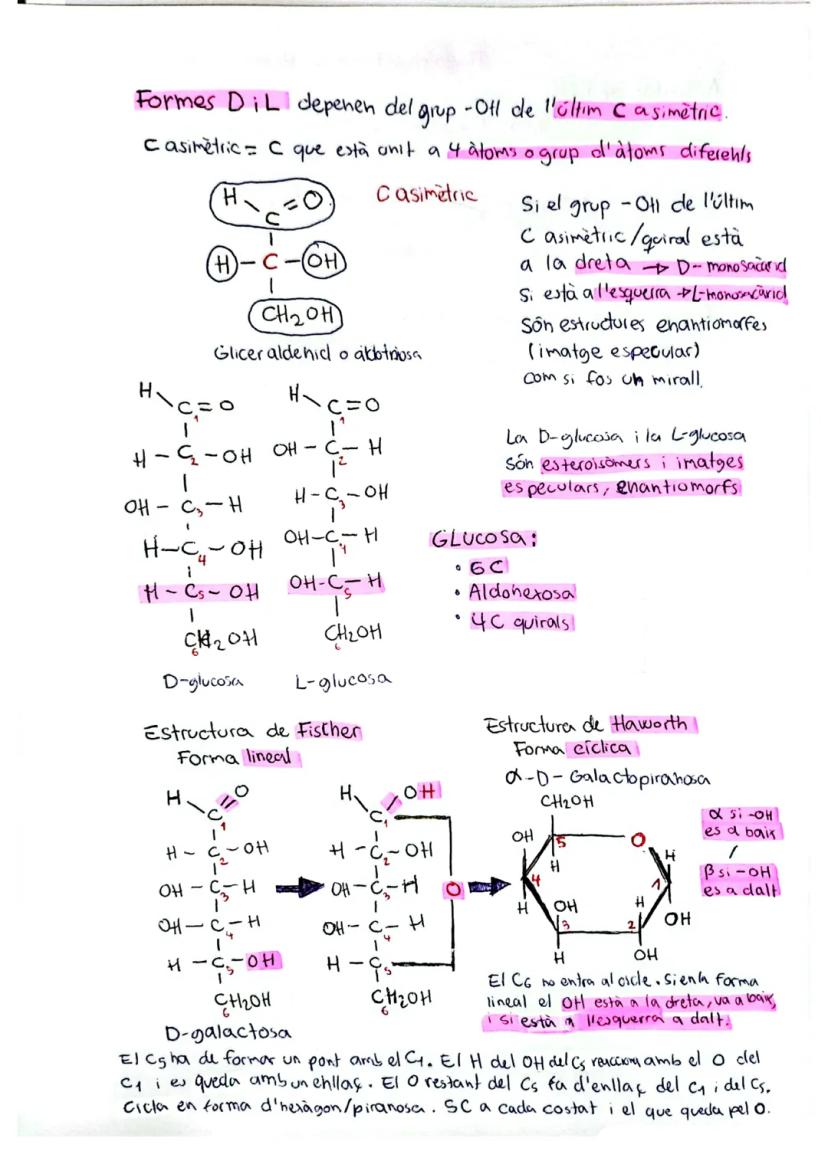 Formes D i L depenen del grup -OH de l'últim C asimètric.
C asimètric = C que està unit a 4 àtoms o grup d'àtoms diferents
H C = O
H - C - OH
CH2OH
Gliceraldehid o aldotriosa
C asimètric
Si el grup -OH de l'últim
C asimètric/quiral està
a la dreta → D-monosacàrid
Si està a l'esquerra → L-monosacàrid
Són estructures enantiomorfes
(imatge especular)
com si fos un mirall.
H C1 = O
H - C2 - OH
OH - C3 - H
H - C4 - OH
H - C5 - OH
CH2OH
6
D-glucosa
H C1 = O
OH - C2 - H
H - C3 - OH
OH - C4 - H
OH - C5 - H
CH2OH
6
L-glucosa
La D-glucosa i la L-glucosa
són esteroisòmers i imatges
especulars, enantiomorfs
GLUCOSA:
• 6C
• Aldohexosa
• 4C quirals
Estructura de Fischer
Forma lineal
H C1 = O
H - C2 - OH
OH - C3 - H
OH - C4 - H
H - C5 - OH
CH2OH
6
D-galactosa
H C1 OH
H - C2 - OH
OH - C3 - H
O
OH - C4 - H
H - C5
CH2OH
6
Estructura de Haworth
Forma cíclica
α-D-Galactopiranosa
CH2OH
OH 5 O
H H
4 1
H OH H OH
3 2
H OH
α si -OH
es a baix
/
β si -OH
es a dalt
El C6 no entra al cicle. Si en la forma
lineal el OH està a la dreta, va a baix,
i si està a l'esquerra a dalt.
El C5 ha de formar un pont amb el C1. El H del OH del C5 reacciona amb el O del
C1 i es queda amb un enllaç. El O restant del C5 fa d'enllaç del C1 i del C5.
Cicla en forma d'hexàgon/piranosa. 5C a cada costat i el que queda pel O.